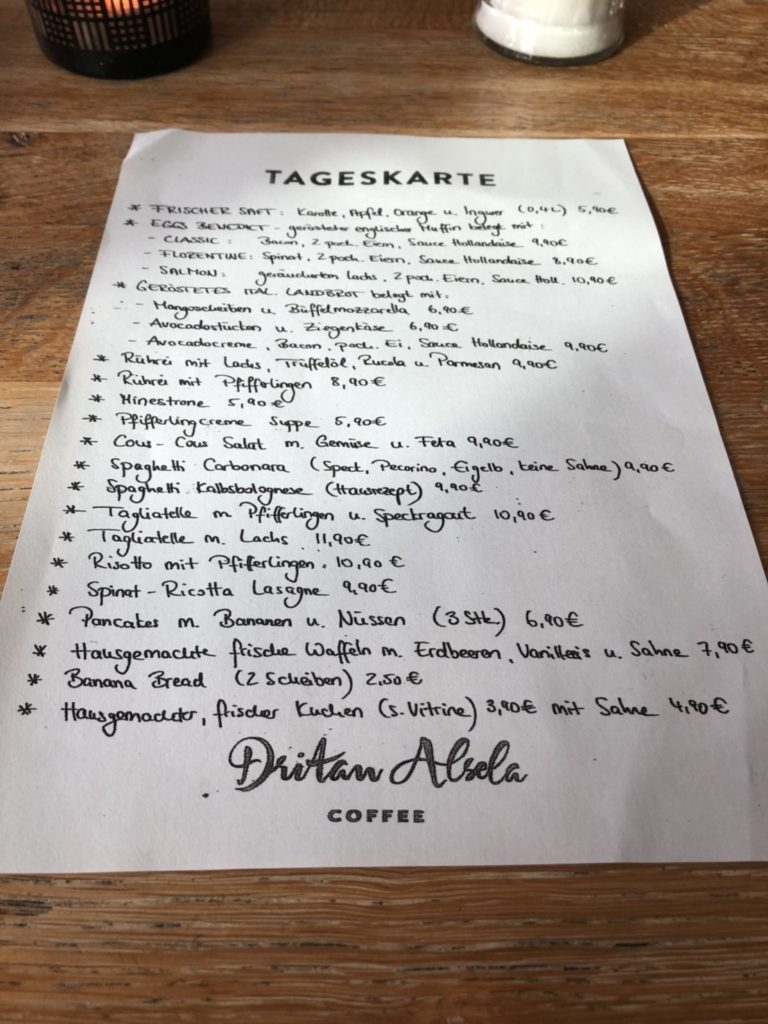 TAGESKARTE
* FRISCHER SAFT: Karotte, Apfel, Orange u. Ingwer (0,4L) 5,90€
* EGGS BENEDICT - gerösteter englischer Muffin belegt mit:
- CLASSIC: Bacon, 2 poch. Eiern, Sauce Hollandaise 9,90€
- FLORENTINE: Spinat, 2 poch. Eiern, Sauce Hollandaise 8,90€
- SALMON: geräucherten Lachs, 2 poch. Eiern, Sauce Holl. 10,90€
* GERÖSTETES ITAL. LANDBROT belegt mit:
- Mangoscheiben u. Büffelmozzarella 6,90€
- Avocadostücken u. Ziegenkäse 6,90€
- Avocadocreme, Bacon, poch. Ei, Sauce Hollandaise 9,90€
* Rührei mit Lachs, Trüffelöl, Rucola u. Parmesan 9,90€
* Rührei mit Pfifferlingen 8,90€
* Minestrone 5,90€
* Pfifferlingcreme Suppe 5,90€
* Cous-Cous Salat m. Gemüse u. Feta 9,90€
* Spaghetti Carbonara (Speck, Pecorino, Eigelb, keine Sahne) 9,90€
* Spaghetti Kalbsbolognese (Hausrezept) 9,90€
* Tagliatelle m. Pfifferlingen u. Speckragout 10,90€
* Tagliatelle m. Lachs 11,90€
* Risotto mit Pfifferlingen. 10,90€
* Spinat-Ricotta Lasagne 9,90€
* Pancakes m. Bananen u. Nüssen (3 Stk.) 6,90€
* Hausgemachte frische Waffeln m. Erdbeeren, Vanilleeis u. Sahne 7,90€
* Banana Bread (2 Scheiben) 2,50€
* Hausgemachter, frischer Kuchen (s. Vitrine) 3,90€ mit Sahne 4,90€
Dritan Alsela
COFFEE